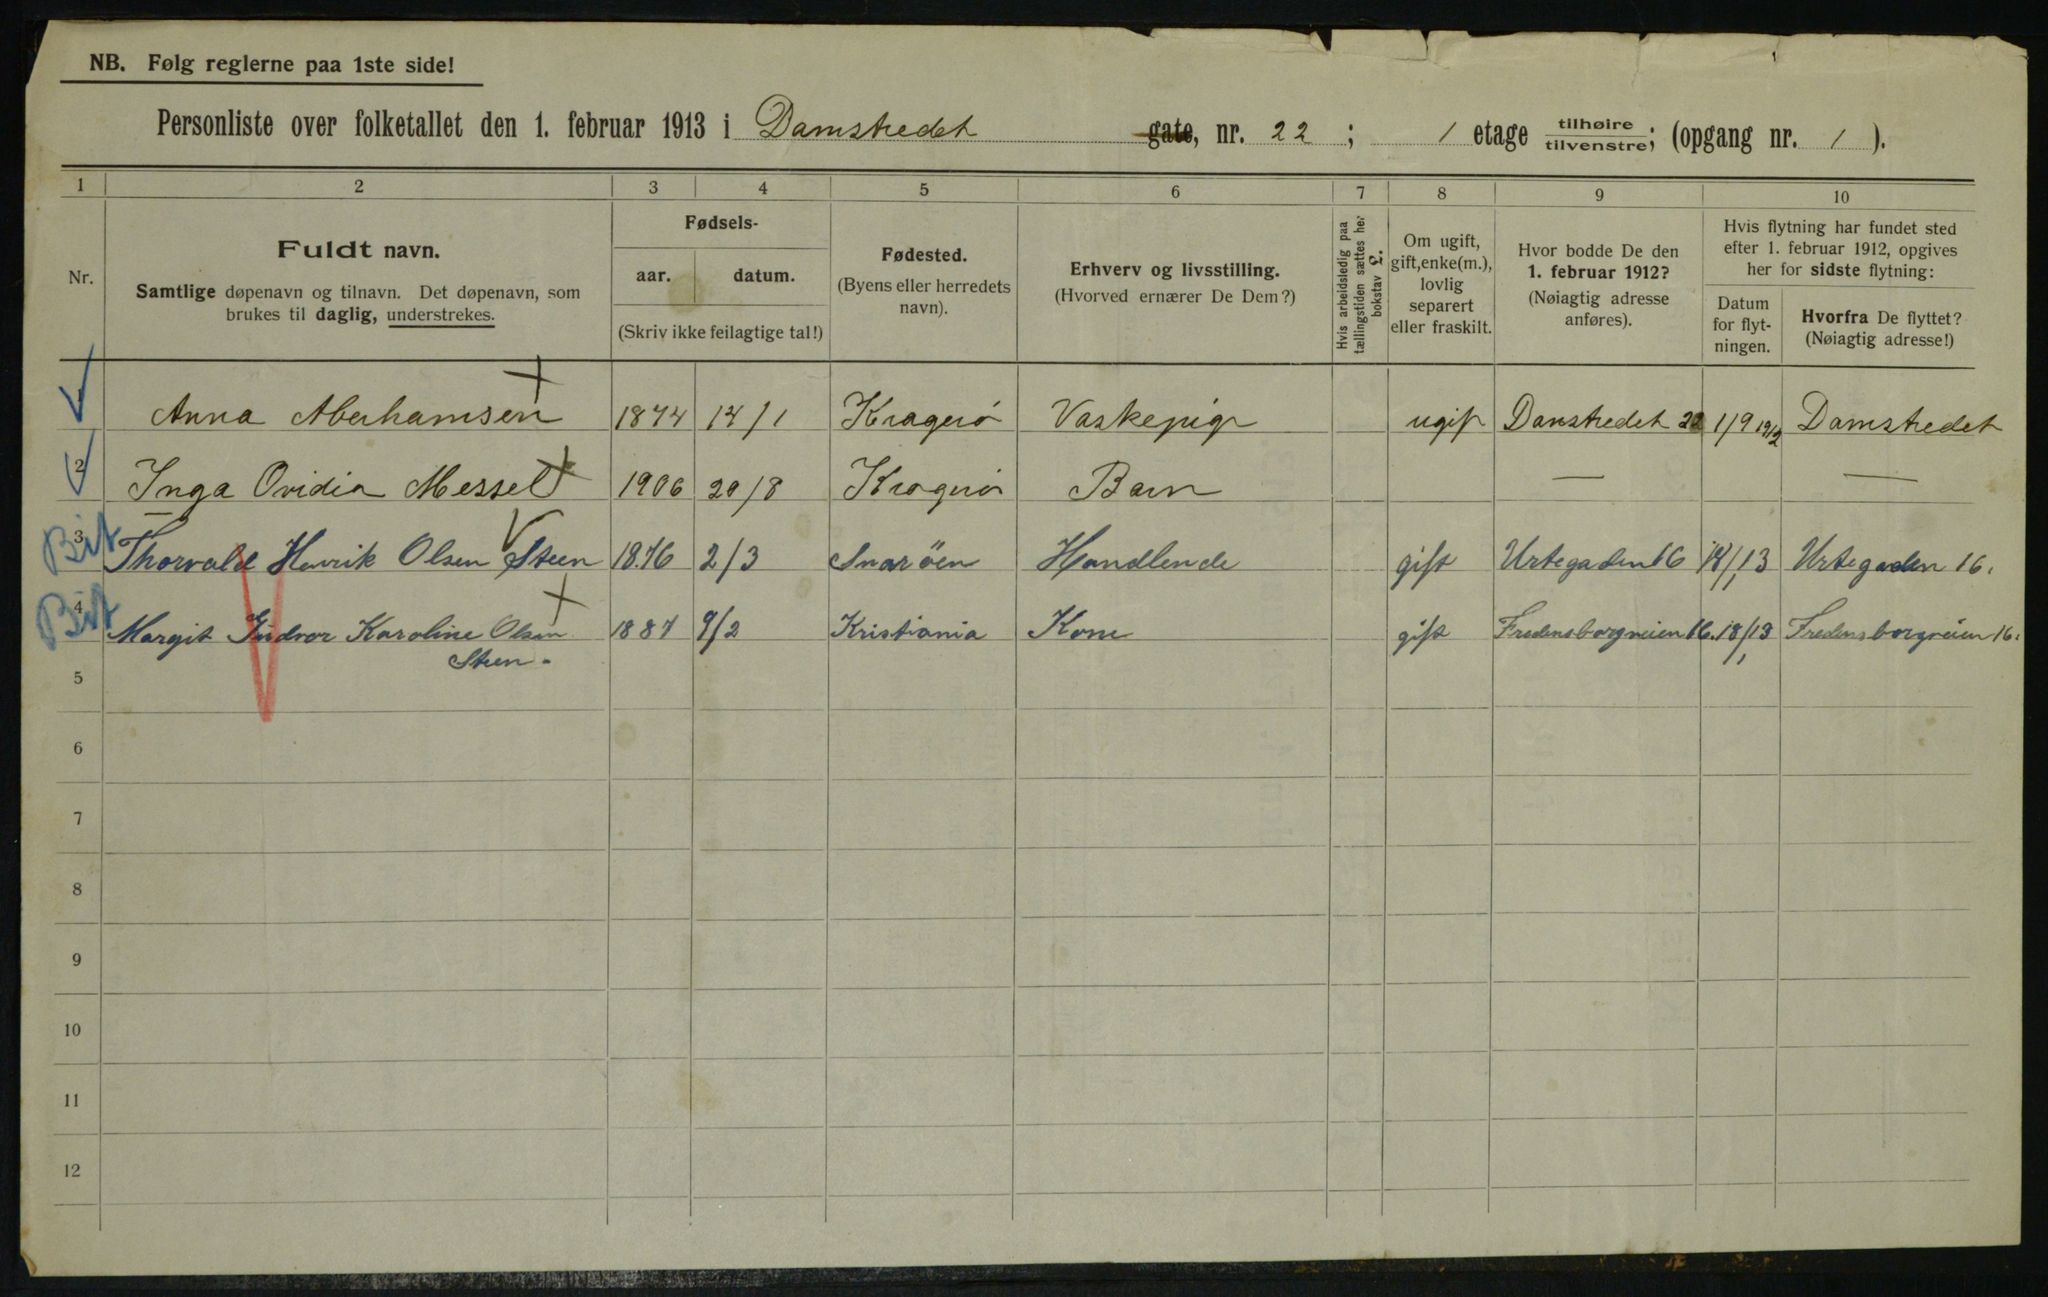 NB. Følg reglerne paa 1ste side!
Personliste over folketallet den 1. februar 1913 i Damstredet gate, nr. 22; 1 etage tilhøire tilvenstre; (opgang nr. 1).
1 2 3 4 5 6 7 8 9 10
Nr.
Fuldt navn.
Samtlige døpenavn og tilnavn. Det døpenavn, som
brukes til daglig, understrekes.
Fødsels-
aar. datum.
(Skriv ikke feilagtige tal!)
Fødested.
(Byens eller herredets
navn).
Erhverv og livsstilling.
(Hvorved ernærer De Dem?)
Hvis arbeidsledig paa
tællingstiden sættes her
bokstav L.
Om ugift,
gift, enke(m.),
lovlig
separert
eller fraskilt.
Hvor bodde De den
1. februar 1912?
(Nøiagtig adresse
anføres).
Hvis flytning har fundet sted
efter 1. februar 1912, opgives
her for sidste flytning:
Datum
for flyt-
ningen.
Hvorfra De flyttet?
(Nøiagtig adresse!)
1 Anna Aberhamsen 1874 14/1 Kragerö Vaskepige ugift Damstredet 22 1/9 1912 Damstredet
2 Inga Ovidia Messel 1906 20/8 Kragerö Barn — —
Bit 3 Thorvald Henrik Olsen Steen 1876 2/3 Snaröen Handlende gift Urtegaden 16 18/1 13 Urtegaden 16.
Bit 4 Margit Gudvor Karoline Olsen 1887 9/2 Kristiania Kone gift Fredensborgveien 16. 18/1 13 Fredensborgveien 16.
Steen.
5
6
7
8
9
10
11
12